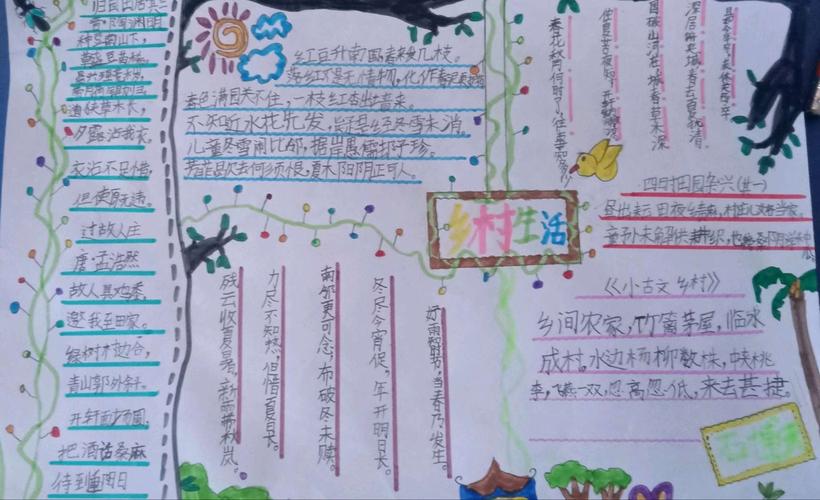 归园田居其三
晋·陶渊明
种豆南山下,
草盛豆苗稀。
晨兴理荒秽,
带月荷锄归。
道狭草木长,
夕露沾我衣。
衣沾不足惜,
但使愿无违。
过故人庄
唐·孟浩然
故人具鸡黍,
邀我至田家。
绿树村边合,
青山郭外斜。
开轩面场圃,
把酒话桑麻
待到重阳日
红豆生南国,春来发几枝。
落红不是无情物,化作春泥更护花
春色满园关不住,一枝红杏出墙来。
不知近水花先发,疑是经冬雪未消。
儿童冬雪闹比邻,
芳菲歇去何须恨,夏木阴阴正可人。
春花秋月何时了,往事知多少
国破山河在,城春草木深
乡村生活
四时田园杂兴(其一)
昼出耘田夜绩麻,村庄儿女各当家。
童孙未解供耕织,也傍桑阴学种
《小古文 乡村》
乡间农家,竹篱茅屋,临水
成村。水边杨柳数株,中夹桃
李,飞燕一双,忽高忽低,来去甚捷。
残云收夏暑,新雨带秋岚。
力尽不知热,但惜夏日长。
南邻更可念,布破冬未赎。
冬尽今宵促,年开明日长。
好雨知时节,当春乃发生。